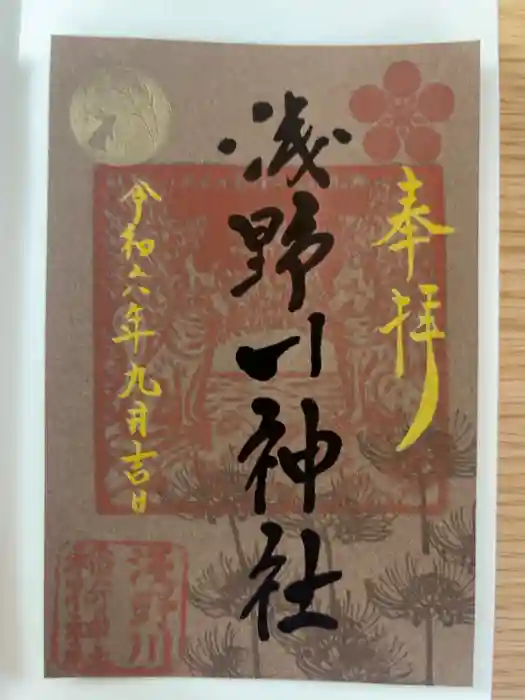 奉拝
浅野川神社
令和六年九月吉日
浅野川